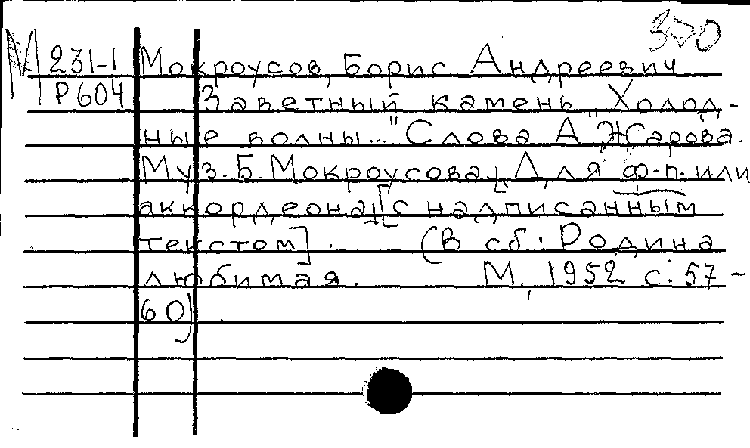 М 231-1 Мокроусов, Борис Андреевич
Р 604 Заветный камень „Холод-
ные волны..." Слова А. Жарова.
Муз. Б. Мокроусова. [Для ф-п. или
аккордеона] [с надписанным
текстом]. (В сб.: Родина
любимая. М., 1952 с. 57-
60)